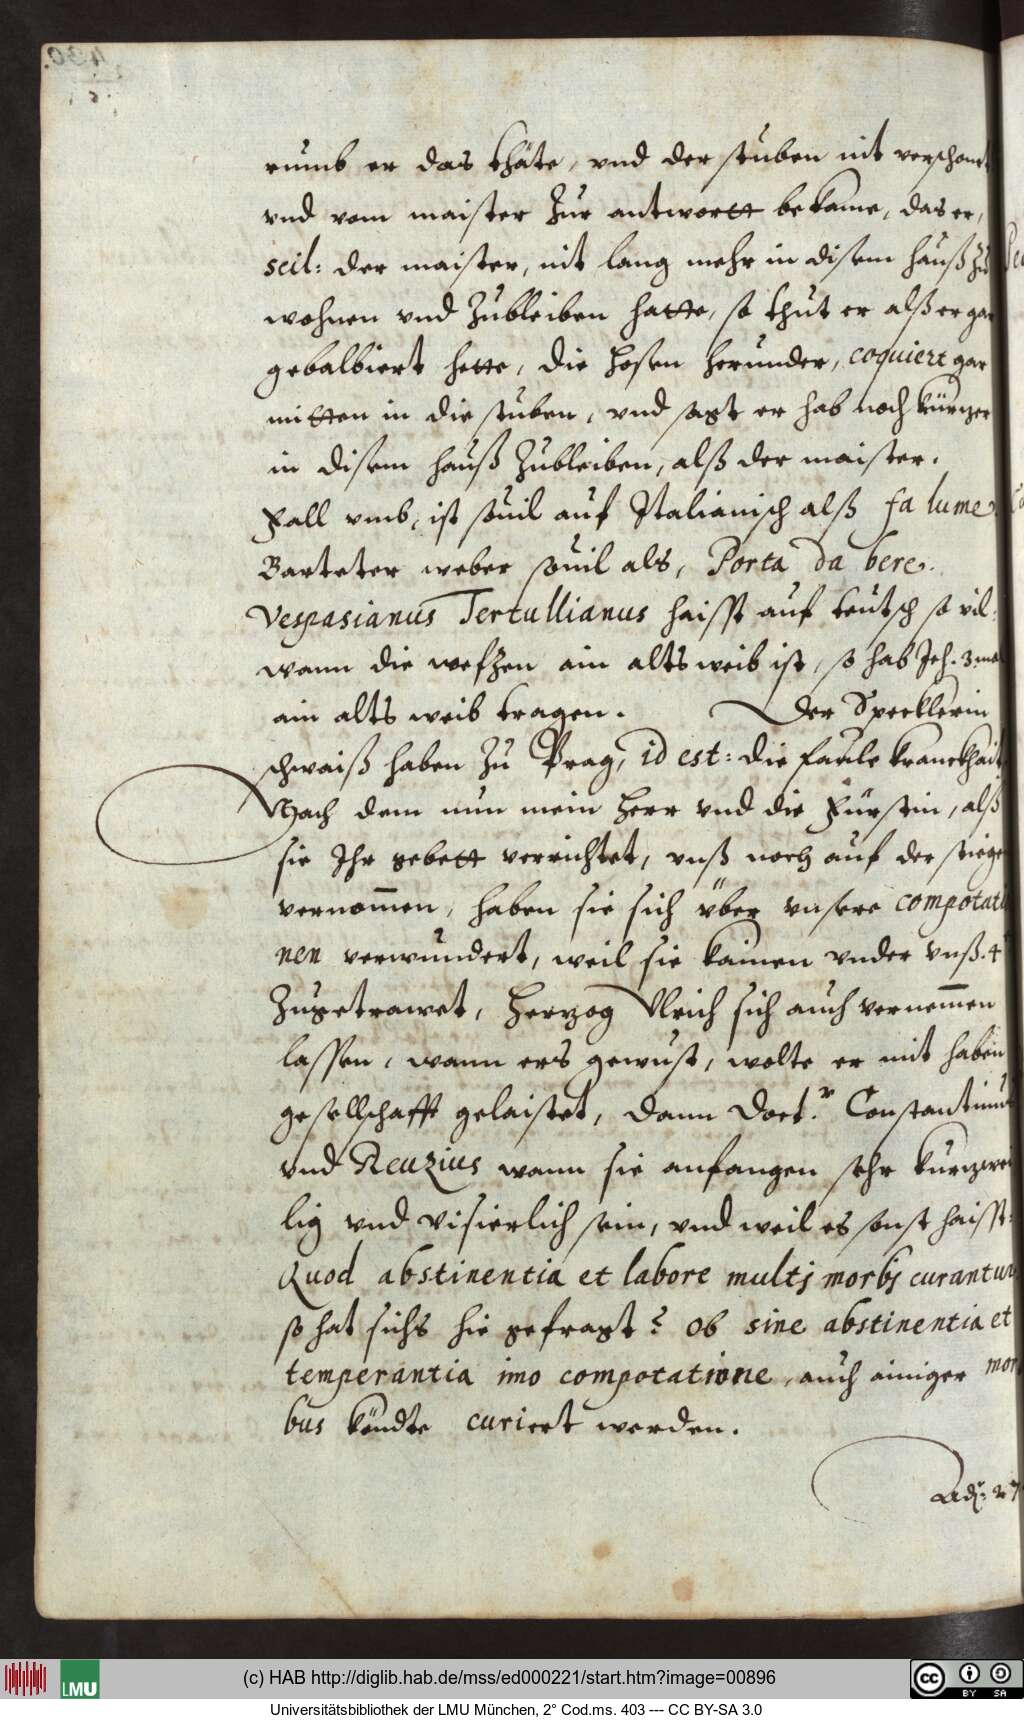 rumb er das thäte, vnd der stuben nit verschont
vnd vom maister zur antwortt bekame, das er,
scil: der maister, nit lang mehr in disem hauß zu
wohnen vnd zubleiben hatte, so thut er alß er gar
gebalbiert hette, die hosen herunder, coquiert gar
mitten in die stuben, vnd sagt er hab noch kürzer
in disem hauß zubleiben, alß der maister.
Fall vmb, ist souil auf Italianisch alß fa lume.
Barteter weber souil als, Porta da bere.
Vespasianus Tertullianus haisst auf teutsch so vil:
wann die wefzen ain alts weib ist, so hab Ich. 3 mal
ain alts weib tragen. Der Specklerin
schwaiß haben zu Prag, id est: die faule kranckhait,
Nach dem nun mein herr vnd die Fürstin, alß
sie Ihr gebett verrichtet, vnß noch auf der stiege
vernom̄en, haben sie sich über vnsere compotatio
nen verwundert, weil sie kainen vnder vnß. 4
zugetrawet, herzog Vlrich sich auch vernem̄en
lassen, wann ers gewust, wolte er mit haben
gesellschafft gelaistet, dann Doct.r Constantinus
vnd Reuzius wann sie anfangen sehr kurzwei
lig vnd visierlich sein, vnd weil es sonst haisst:
Quod abstinentia et labore multj morbj curantur
so hat sichs hie gefragt? ob sine abstinentia et
temperantia imo compotatione, auch ainiger mor
bus köndte curiert werden.
Adj: 27
430.
(c) HAB http://diglib.hab.de/mss/ed000221/start.htm?image=00896
Universitätsbibliothek der LMU München, 2° Cod.ms. 403 --- CC BY-SA 3.0
LMU
cc BY SA